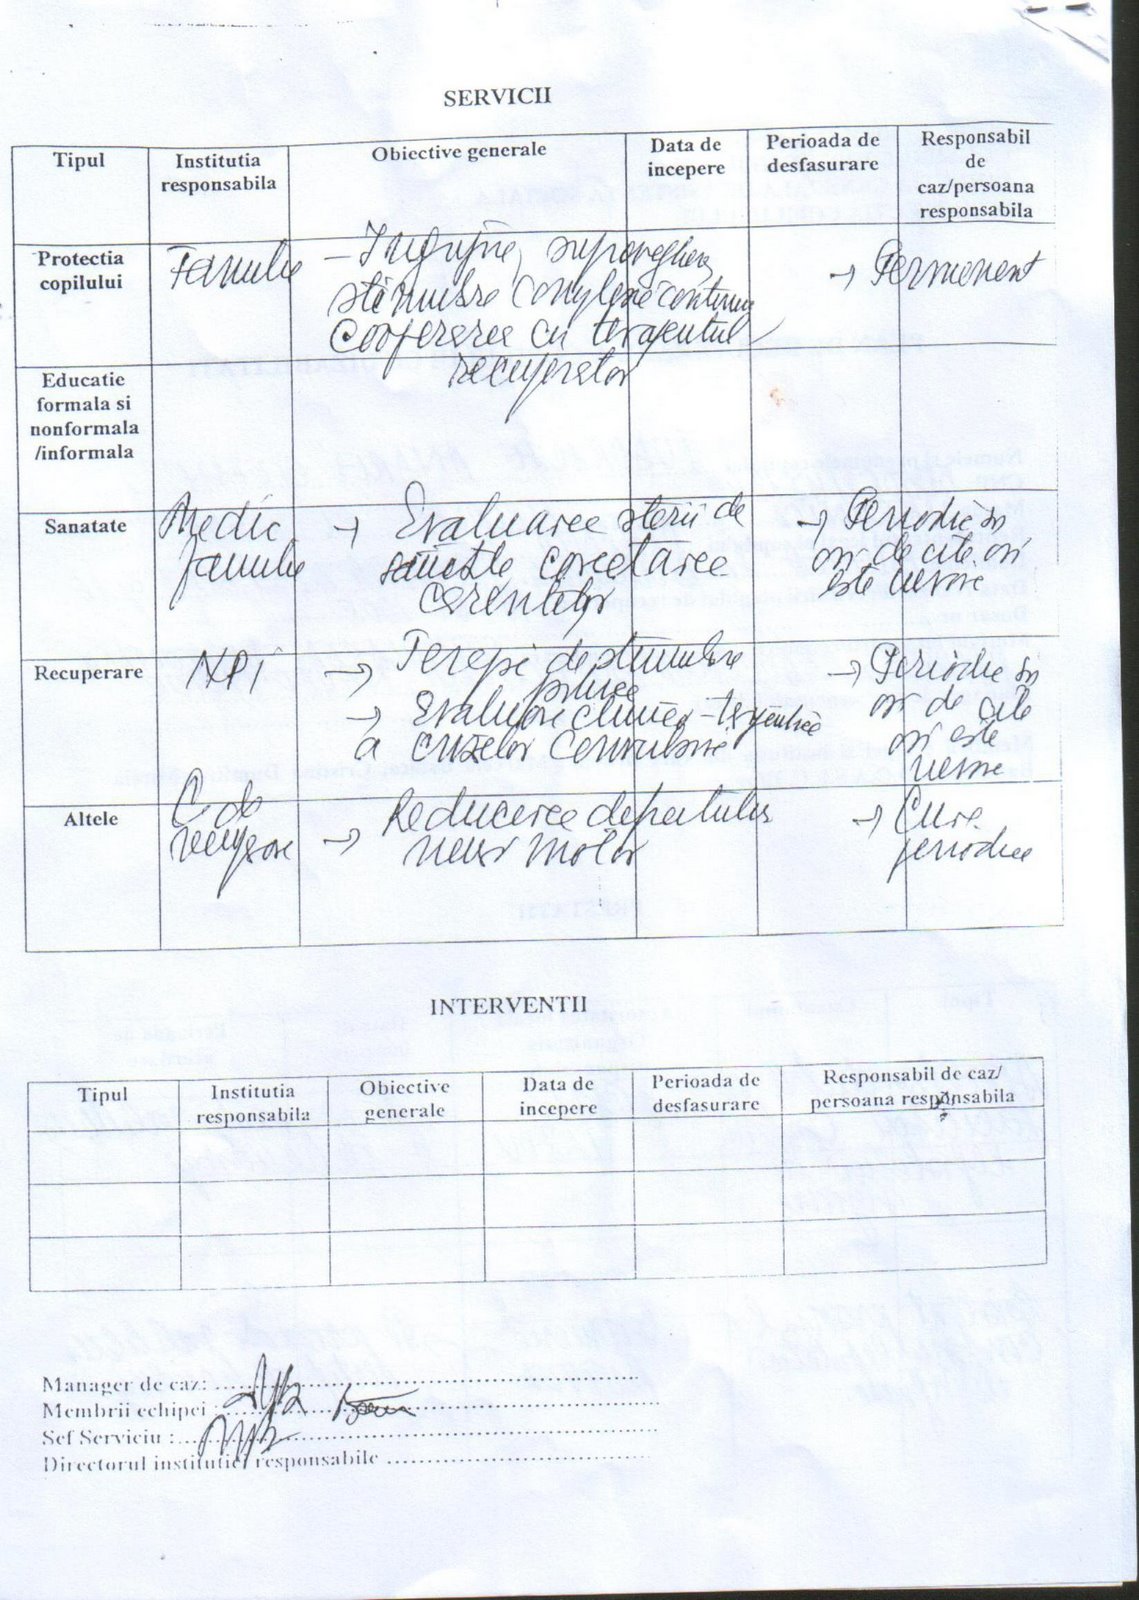 SERVICII
Tipul
Institutia
responsabila
Obiective generale
Data de
incepere
Perioada de
desfasurare
Responsabil
de
caz/persoana
responsabila
Protectia
copilului
Familie
– Ingrijire, supraveghere,
stimulare complexe continua
Cooperarea cu terapeutul
recuperator
→ Permanent
Educatie
formala si
nonformala
/informala
Sanatate
Medic
familie
→ Evaluarea starii de
sanatate corectarea
carentelor
→ Periodic si
ori de cite ori
este nevoie
Recuperare
NPI
→ Terapi de stimulare
→ Evaluare clinica – terapeutica
a crizelor convulsive
→ Periodic si
ori de cite
ori este
nevoie
Altele
C de
recuperare
→ Reducerea deficitului
neuro motor
→ Cure
periodice
INTERVENTII
Tipul
Institutia
responsabila
Obiective
generale
Data de
incepere
Perioada de
desfasurare
Responsabil de caz/
persoana responsabila
Manager de caz:
Membrii echipei :
Sef Serviciu :
Directorul institutiei responsabile